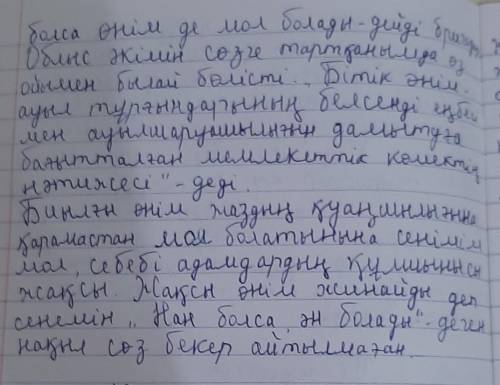 болса өнім де мол болады"-дейді
Облыс әкімін сөзге тартқанымда өз
ойымен былай бөлісті. „Бітік өнім-
ауыл тұрғындарының белсенді еңбегі
мен ауылшаруашылығын дамытуға
бағытталған мемлекеттік көмектің
нәтижесі"-деді.
Биылғы өнім жаздың қуаңшылығына
қарамастан мол болатынына сенімім
мол, себебі адамдардың құлшынысы
жақсы. Жақсы өнім жинайды деп
сенемін „Нан болса, ән болады"-деген
нақыл сөз бекер айтылмаған.